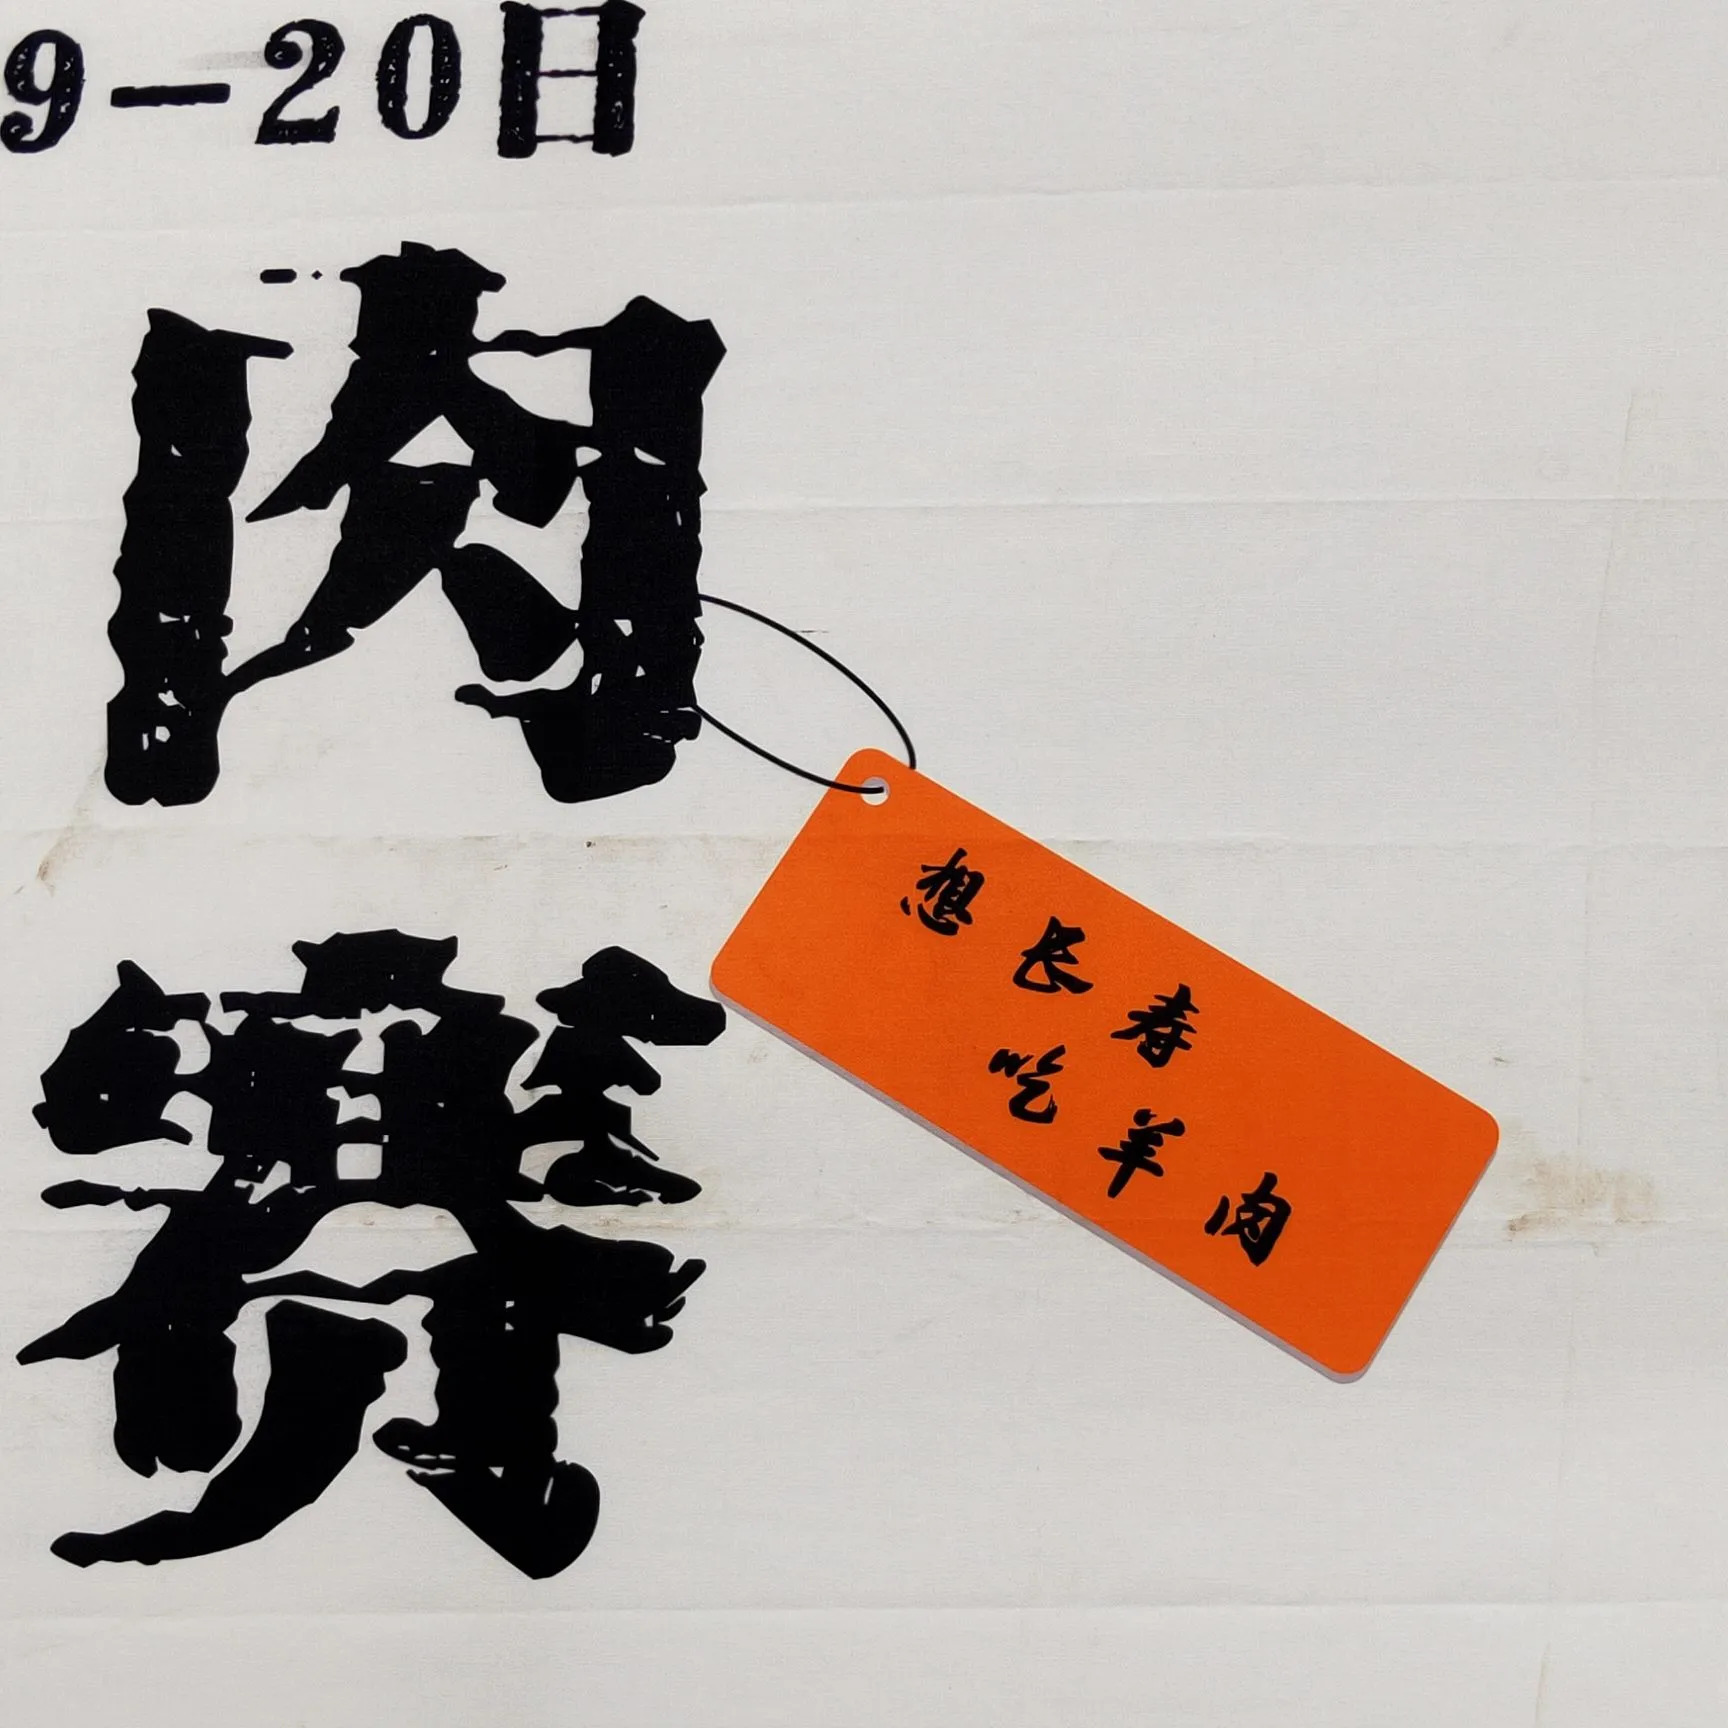 9—20日
肉
赛
想长寿
吃羊肉